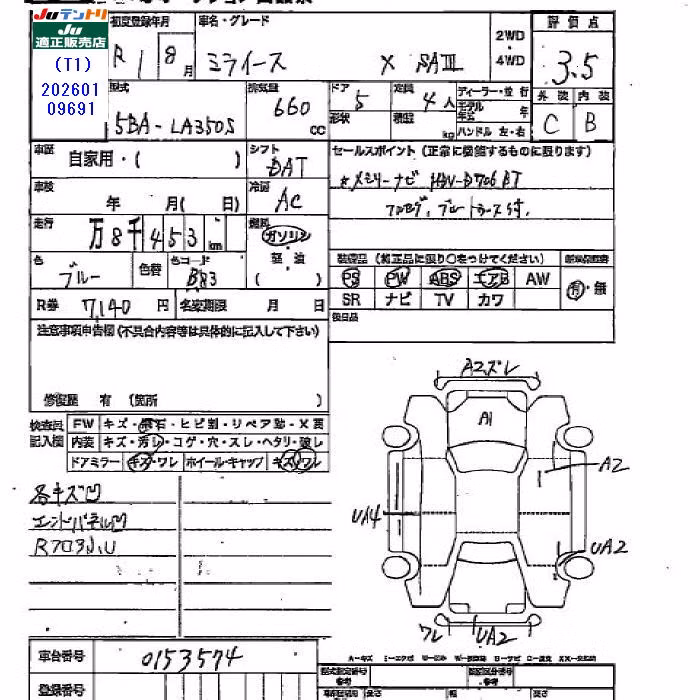 Juテントリ
Ju
適正販売店
(T1)
202601
09691
初度登録年月
R 1 8月
車名・グレード
ミライース X SAⅢ
2WD
4WD
評価点
3.5
型式
5BA-LA350S
排気量
660 cc
ドア
5
形状
定員
4人
積載
kg
ディーラー・並行
モデル年式 年
ハンドル 左・右
外装 内装
C B
車歴
自家用・( )
シフト
DAT
セールスポイント(正常に機能するものに限ります)
メモリーナビ
フルセグ、ブルートゥース付、
車検
年 月( 日)
冷房
AC
走行
万8千453km
燃料
ガソリン
軽油
( )
色
ブルー
色替
色コード
B83
装備品(純正品に限り○をつけてください)
PS PW ABS エアB AW
SR ナビ TV カワ
有・無
R券 7,140円
名変期限 月 日
後日品
注意事項申告欄(不具合内容等は具体的に記入して下さい)
修復歴 有(箇所 )
検査員記入欄
FW キズ・飛石・ヒビ割・リペア跡・X要
内装 キズ・汚レ・コゲ・穴・スレ・ヘタリ・破レ
ドアミラー キズ・ワレ ホイール・キャップ キズ・ワレ
各キズ凹
エンドパネル凹
A2ズレ
A1
A2
UA4
UA2
ワレ UA2
車台番号 0153574
登録番号